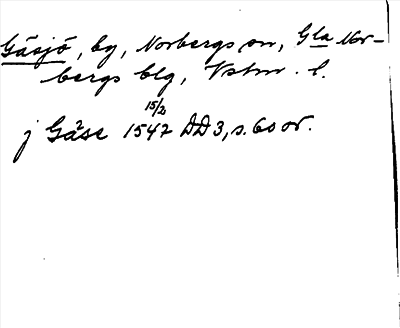 Gäsjö, by, Norbergs sn, Gla Nor-
bergs blg, Vstm. l.
15/2
j Gåse 1547 DD3, s. 60 or.